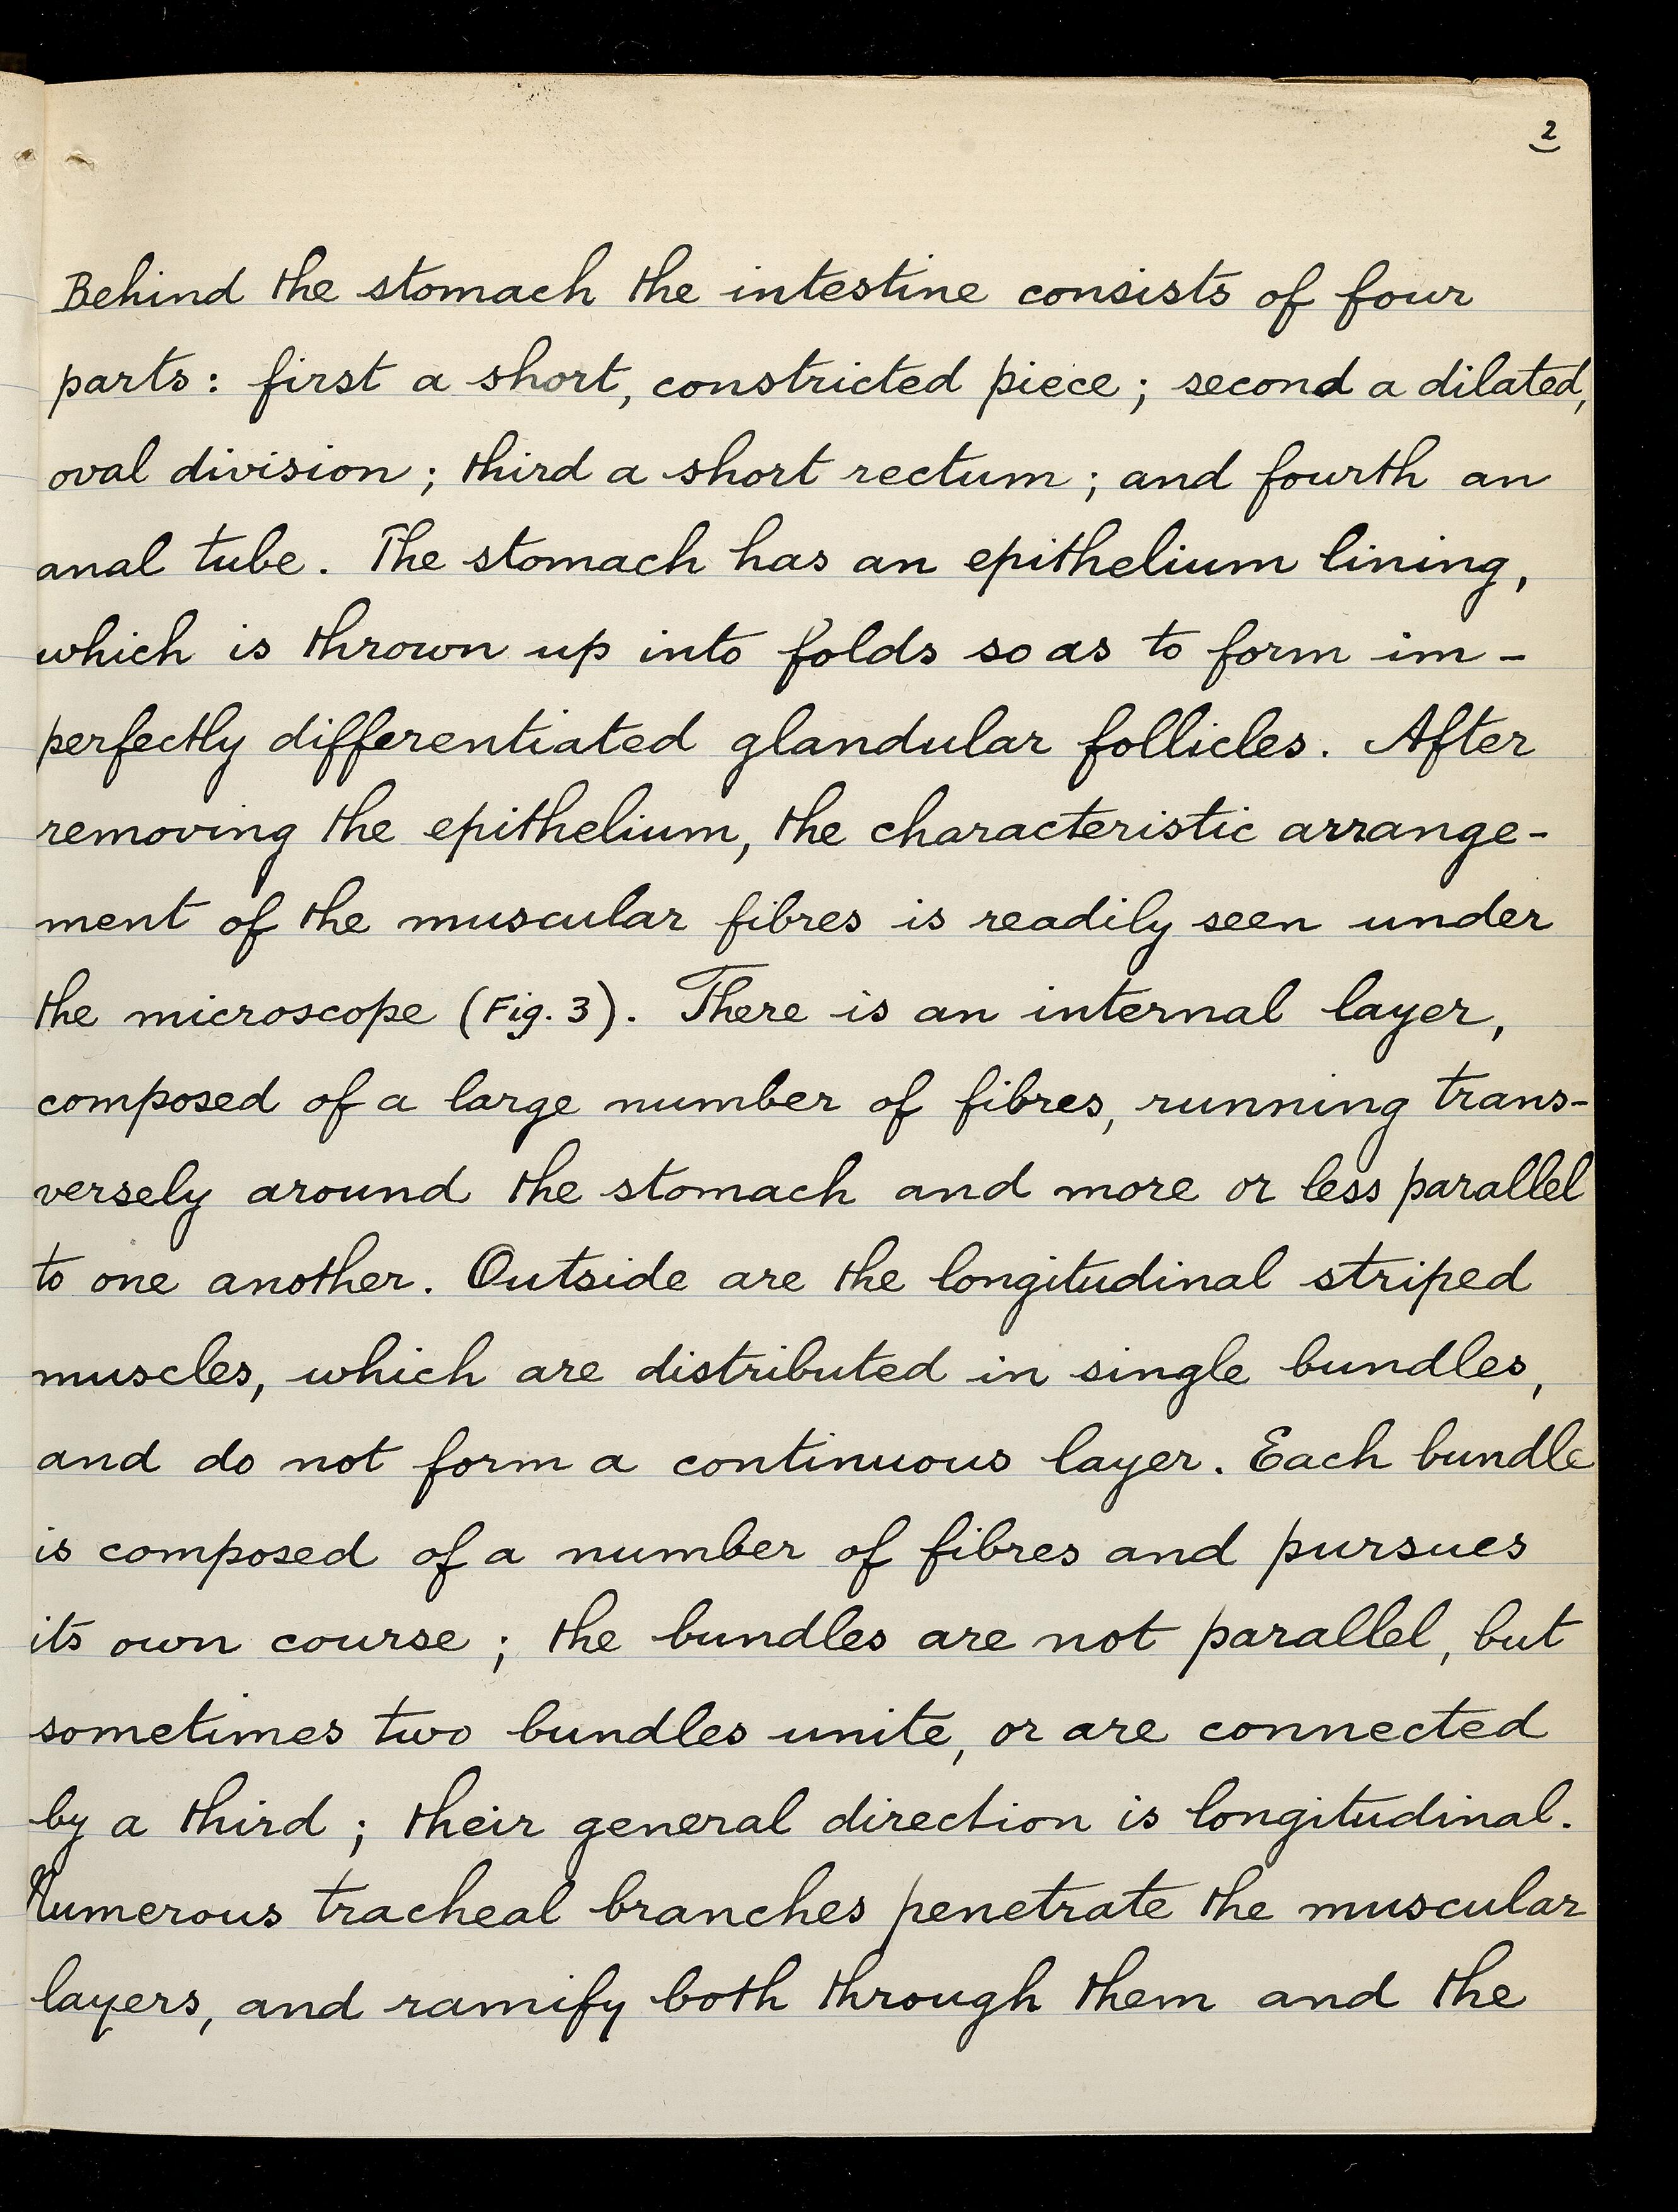 2
Behind the stomach the intestine consists of four
parts: first a short, constricted piece; second a dilated,
oval division; third a short rectum; and fourth an
anal tube. The stomach has an epithelium lining,
which is thrown up into folds so as to form im-
perfectly differentiated glandular follicles. After
removing the epithelium, the characteristic arrange-
ment of the muscular fibres is readily seen under
the microscope (Fig. 3). There is an internal layer,
composed of a large number of fibres, running trans-
versely around the stomach and more or less parallel
to one another. Outside are the longitudinal striped
muscles, which are distributed in single bundles,
and do not form a continuous layer. Each bundle
is composed of a number of fibres and pursues
its own course; the bundles are not parallel, but
sometimes two bundles unite, or are connected
by a third; their general direction is longitudinal.
Numerous tracheal branches penetrate the muscular
layers, and ramify both through them and the